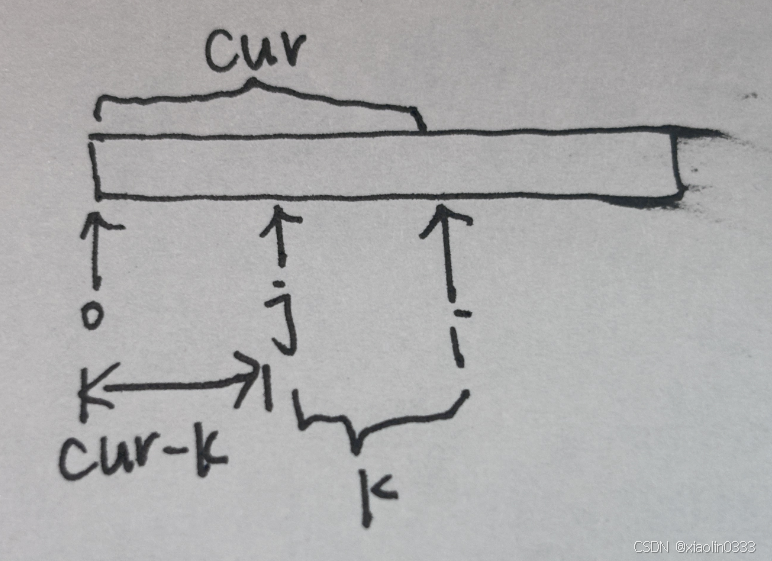 cur
0 j i
cur-k k
CSDN @xiaolin0333